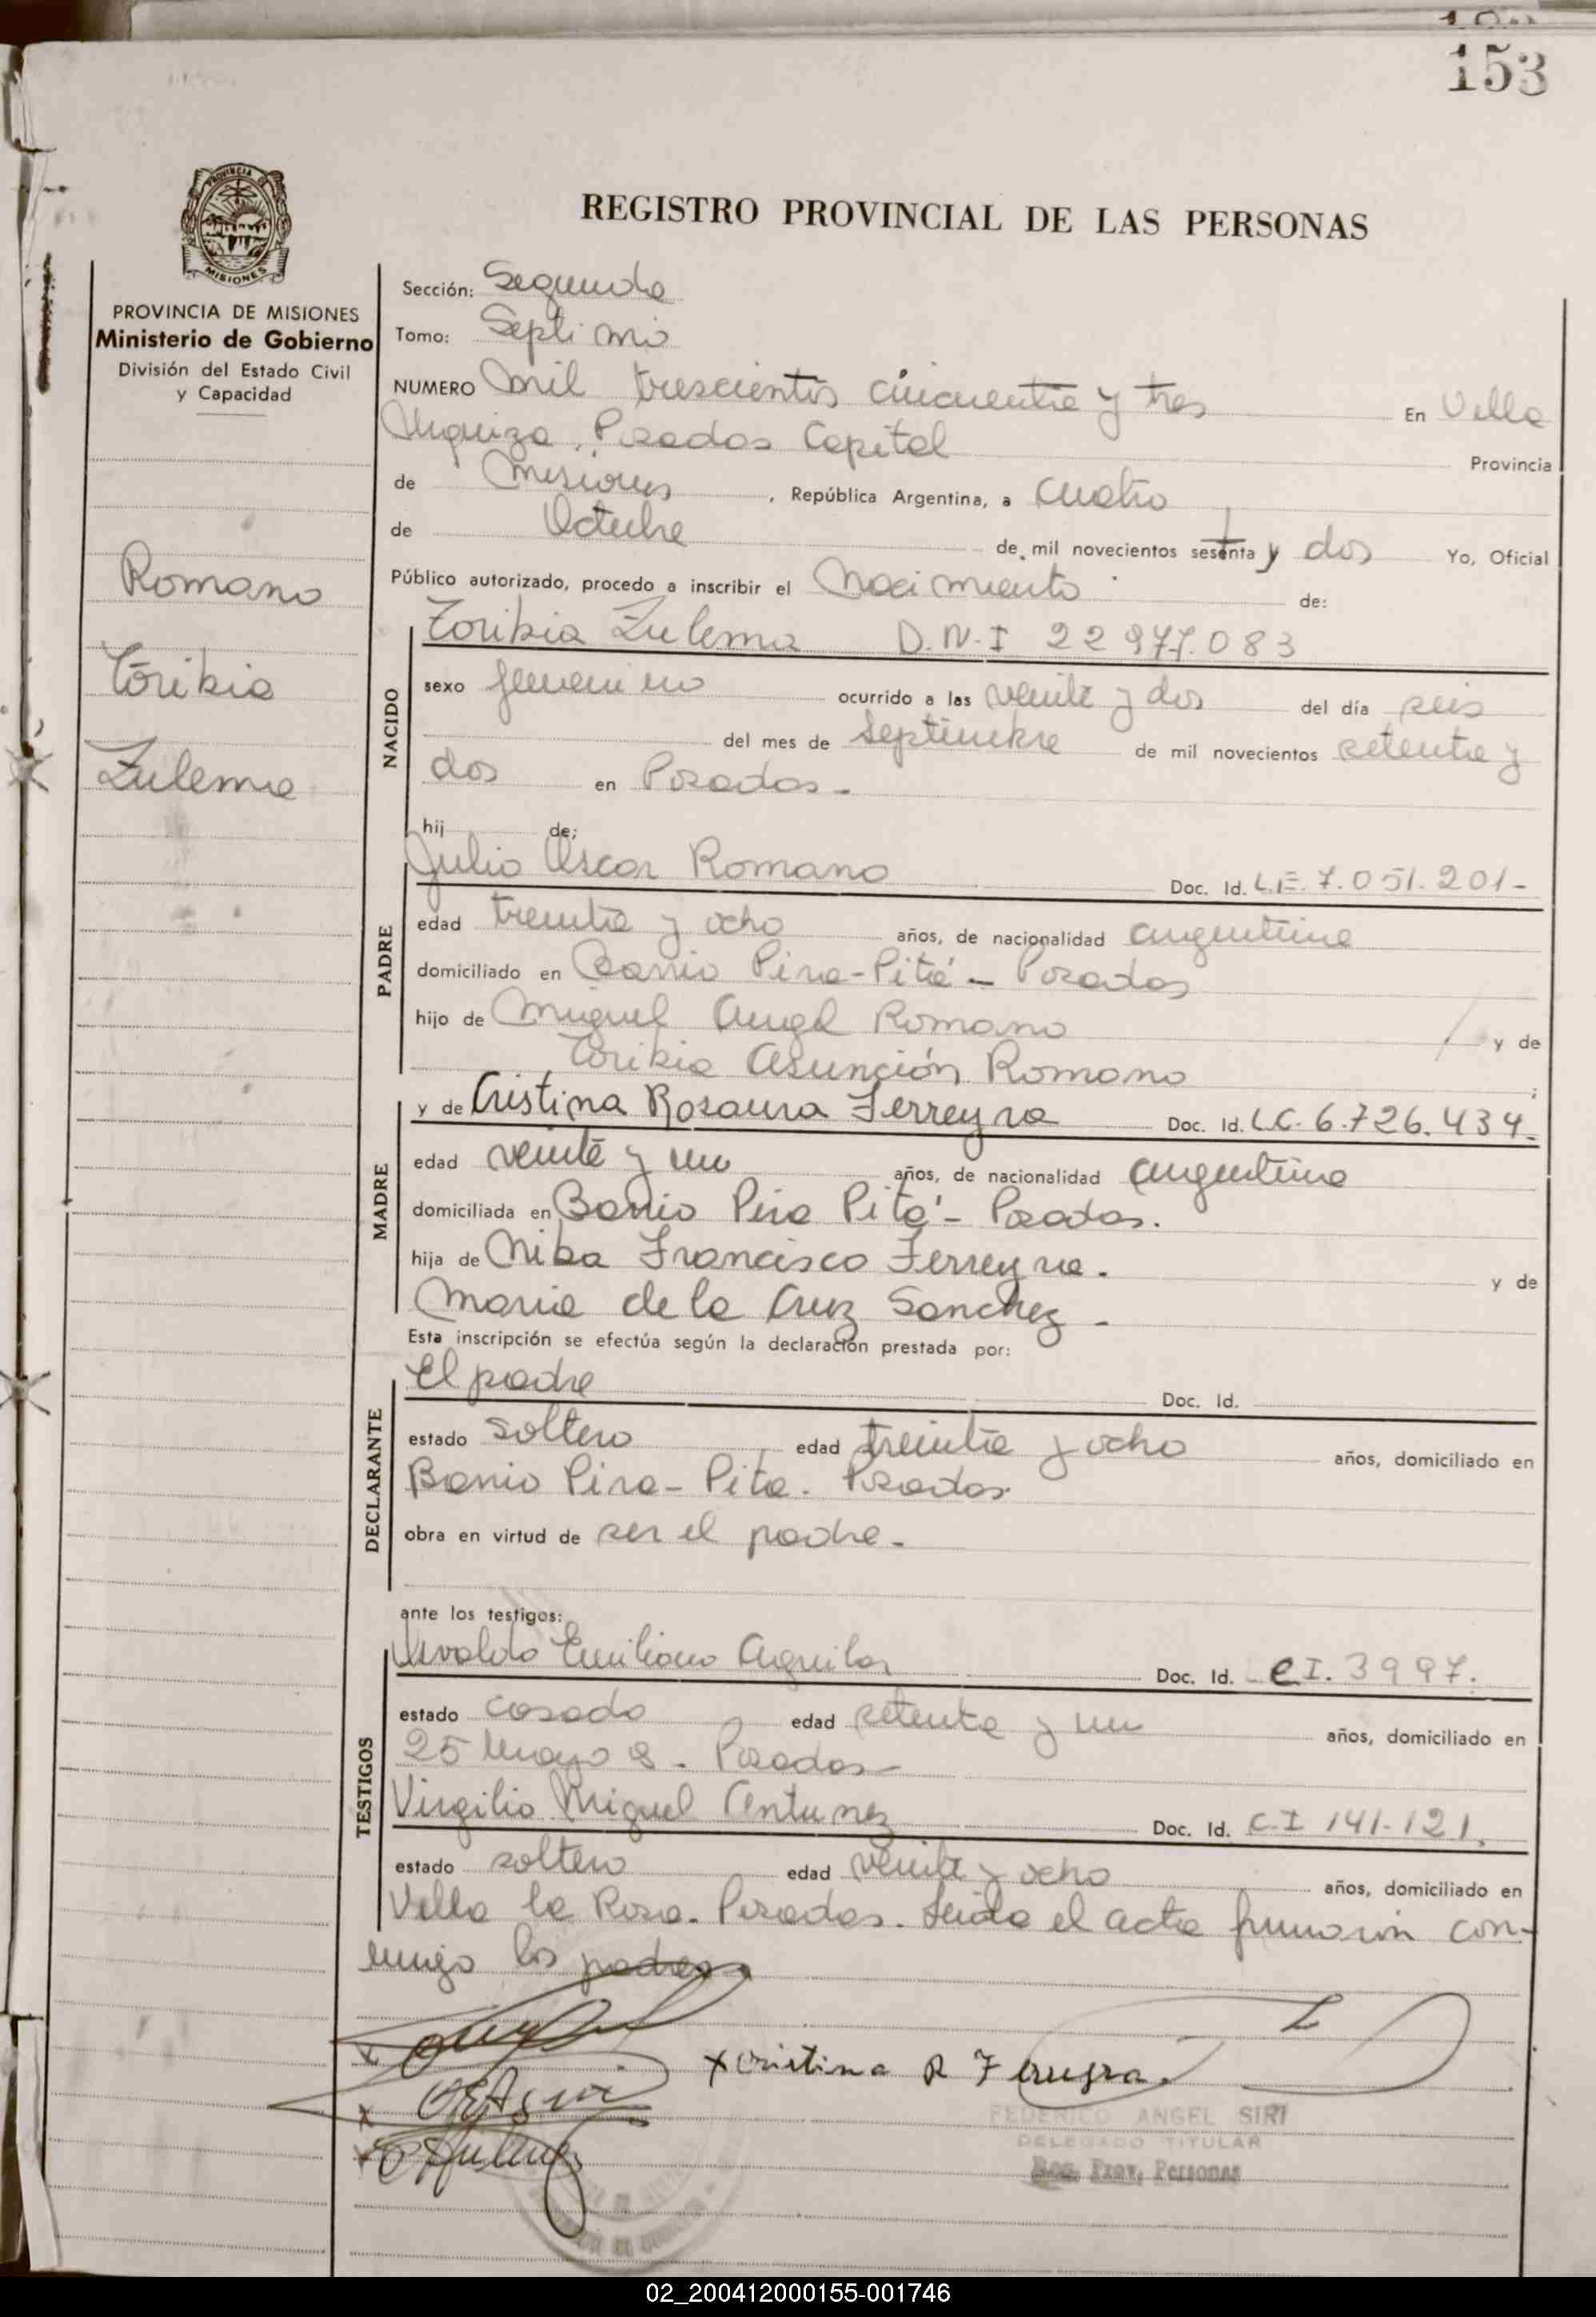 153
REGISTRO PROVINCIAL DE LAS PERSONAS
PROVINCIA DE MISIONES
Ministerio de Gobierno
División del Estado Civil
y Capacidad
Romano
Toribia
Zulema
Sección: Segunda
Tomo: Septimo
NUMERO Mil trescientos cincuenta y tres En Villa
Urquiza, Posadas Capital Provincia
de Misiones, República Argentina, a Cuatro
de Octubre de mil novecientos setenta y dos Yo, Oficial
Público autorizado, procedo a inscribir el Nacimiento de:
NACIDO
Toribia Zulema D.N.I 22.977.083
sexo femenino ocurrido a las veinte y dos del día seis
del mes de Septiembre de mil novecientos setenta y
dos en Posadas.-
hij de:
PADRE
Julio Oscar Romano Doc. Id. L.E. 7.051.201-
edad treinta y ocho años, de nacionalidad argentina
domiciliado en Barrio Pira-Pitá - Posadas
hijo de Miguel Angel Romano y de
Toribia Asunción Romano ;
MADRE
y de Cristina Rosaura Ferreyra Doc. Id. L.C. 6.726.434.
edad veinte y un años, de nacionalidad argentina
domiciliada en Barrio Pira Pitá - Posadas.
hija de Francisco Ferreyra. y de
Maria de la Cruz Sanchez -
Esta inscripción se efectúa según la declaración prestada por:
DECLARANTE
El padre Doc. Id.
estado soltero edad treinta y ocho años, domiciliado en
Barrio Pira-Pita. Posadas.
obra en virtud de ser el padre.-
ante los testigos:
TESTIGOS
Osvaldo Emiliano Aguilar Doc. Id. CI. 3997.
estado casado edad setenta y un años, domiciliado en
25 Mayo 8. Posadas-
Virgilio Miguel Antunez Doc. Id. C.I 141.121.
estado soltero edad veinte y ocho años, domiciliado en
Villa la Rosa. Posadas. Leida el acta firmaron con-
migo los padres.
x Cristina R Ferreyra.
FEDERICO ANGEL SIRI
DELEGADO TITULAR
Reg. Prov. Personas
02_200412000155-001746